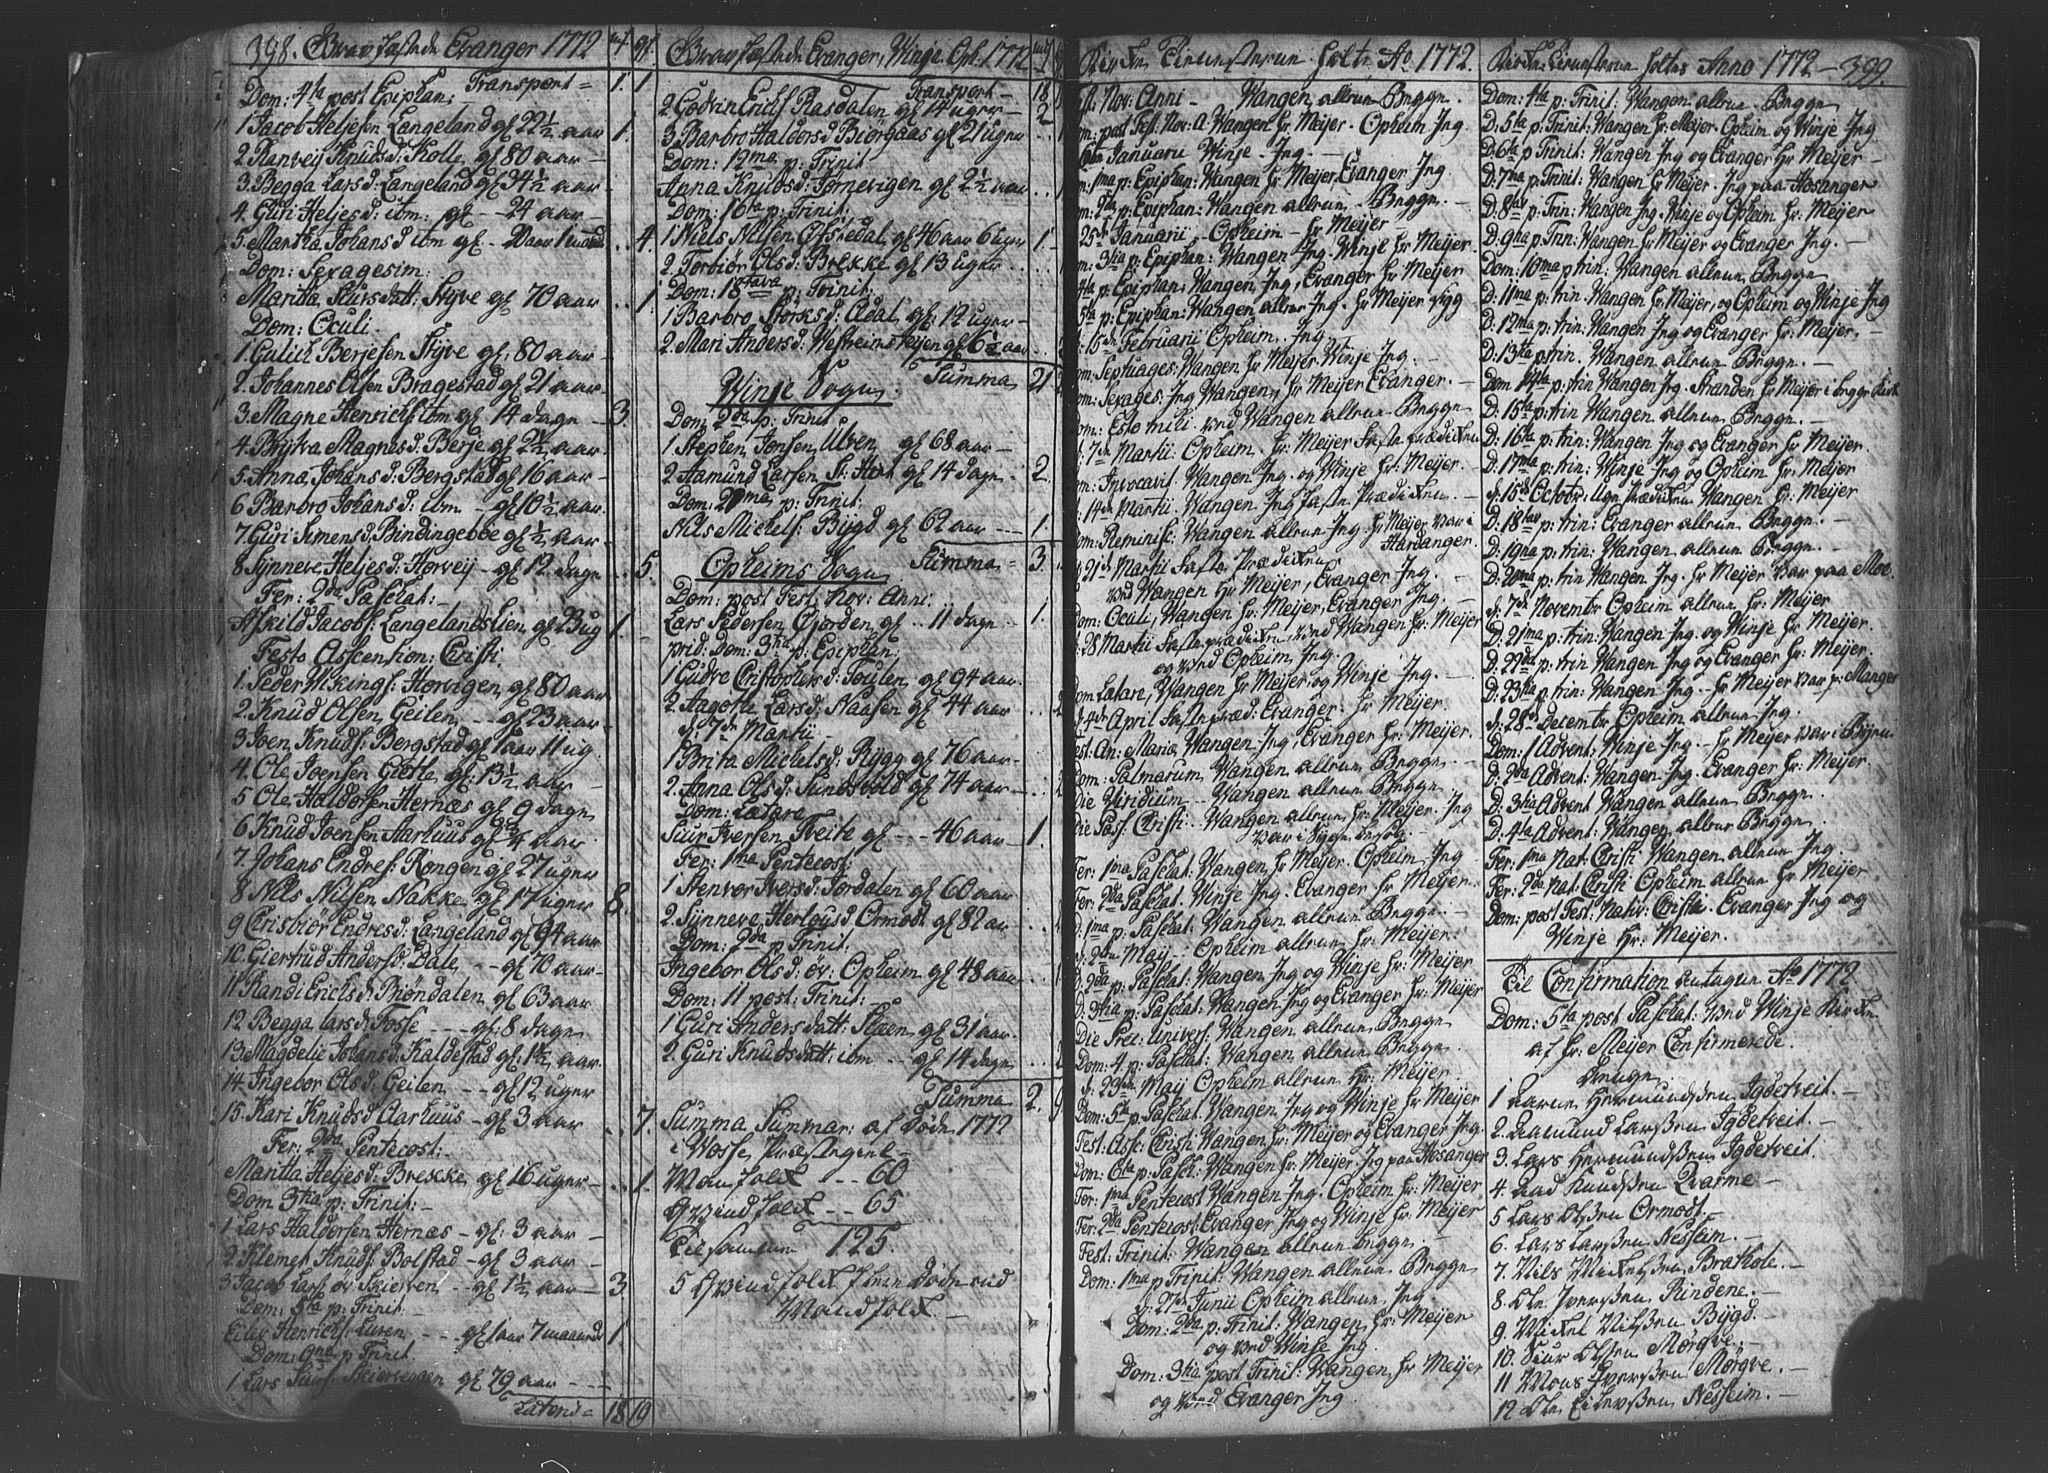 398. Gravfæstede Evanger 1772 M. qv.
Transport = 1. 1
Dom: 4ta post Epiphan:
1 Jacob Heljesen Langeland gl 22½ aar 1.
2. Ranveij Knudsd: Kolle gl 80 aar
3. Begga Larsd: Langeland gl 34½ aar
4. Guri Heljesd: ibm: gl -- 24 aar
5. Martha Johansd ibm gl -- 20 aar 1 maaned .. 4.
Dom: Sexagesim:
Maritta Siursdatt: Styve gl 70 aar ... 1.
Dom: Oculi.
1. Gulich Berjesen Styve gl: 80 aar
2. Johannes Olsen Bragestad gl 21 aar
3. Magne Henrichs: ibm gl 14 dage 3
4. Brytva Magnesd: Berje gl 2½ aar
5. Anna Johansd: Bergstad gl 16 aar
6 Barbro Johansd: ibm - gl 10½ aar
7. Guri Simensd: Bindingeböe gl ½ aar
8 Synneve Heljesd: Horveij - gl 12 dage 5.
Fer: 2da Paschat:
Askild Jacobs: Langelandslien gl 23 ug 1
Festo Asscention: Christi
1. Peder Wikings: Horvigen gl 80 aar
2. Knud Olsen Geilen -- gl 23 aar
3 Joen Knuds: Bergstad gl 1 aar 11 ug.
4. Ole Joensen Gietle gl: 13½ aar
5 Ole Haldorsen Hernæs gl 9 dage
6 Knud Joensen Aarhuus gl ¾ aar
7. Johans Endres: Rongen gl 27 uger
8 Nils Nilsen Nakke gl 17 uger 8.
9 Christbiör Endresd: Langeland gl 94 aar
10. Giertrud Andersd: Dale -- gl 70 aar
11. Randi Erichsd: Biöndalen gl 63 aar
12 Begga Larsd: Fosse --- gl: 8 dage
13. Magdelie Johansd: Kaldestad gl: 1½ aar
14. Ingebor Olsd: Geilen -- gl 12 uger
15. Kari Knudsd Aarhuus - gl 3 aar .. 7.
Fer: 2da Pentecost:
Maritta Heljesd: Brekke gl 16 uger .. 1.
Dom 3tia p: Trinit:
1 Lars Haldorsen Hernæs - gl: 3 aar
2 Klemet Knuds: Bolstad - gl 3 aar
3 Jacob Lars: öv Skierven -- gl 1½ aar 3
Dom: 5ta p: Trinit.
Eiler Henrichs: Luren -- gl 1 aar 7 maaneder 1.
Dom: 9na p Trinit.
1 Lars Siurs: Skierveggen gl 79 aar
Lateris = 18 19
Gravfæstede Evanger, Winje Oph: 1772
Transport 18
2. Godvin Erichs: Rasdalen gl 14 uger 2
3. Barbro Haldorsd Biörgaas gl 21 uger
Dom: 12ma p: Trinit.
Anna Knudsd: Tornevigen gl 2½ aar
Dom: 16ta p: Trinit:
1 Niels Nilsen Ofsredal gl 46 aar 6 uger 1
2. Torbiör Olsd: Brekke gl 13 uger
Dom: 18tava p: Trinit:
1 Barbro Störksd: Ædal gl 12 uger
2. Mari Andersd: Westreimsteijen gl 6½ aar
Summa 21
Winje Sogn
Dom: 2da p: Trinit
1 Stephen Jonsen Ulven gl 68 aar
2 Aamund Larsen gl 14 dage 2
Dom: 20ma p: Trinit:
Nils Michels: Bÿgd gl 62 aar --- 1.
Summa = 3.
Opheims Sogn
Dom: post Fest. Nov: Anni.
Lars Pedersen Gjorden gl .. 11 dage 1.
prid: Dom: 3tia p: Epiphan:
1 Gudve Christophersd: Foulen gl 94 aar
2. Aagotte Larsd: Haasen gl 44 aar
d: 7de Martii
1 Brita Michelsd: Rÿgg gl 76 aar
2. Anna Olsd: Sundsvold gl 74 aar
Dom: Lætare
Siur Iversen Tveite gl --- 46 aar 1.
Fer: 1ma Pentecost:
1 Stenvor Iversd: Jordalen gl 60 aar
2. Synneve Herlougsd Ormost gl 82 aar
Dom: 2da p Trinit:
Ingebor Olsd: öv: Opheim gl 48 aar
Dom: 11 post: Trinit:
1 Guri Andersdatt: Sloen gl 31 aar
2. Guri Knudsdatt: ibm .. gl 14 dage
Summa 2. 9
Summa Summar: af Döde 1772
i Wosse Præstegield
Mandfolk -- 60
Qvindfolk -- 65
Tilsammen 125.
5 Qvindfolk flere Döde end
Mandfolk
Kirke Tienesterne holte Ao 1772.
Fest. Nov: Anni - Wangen allene Begge.
Dom: post Fest. Nov: A: Wangen hr Meijer. Opheim Jeg
6ta Januarii Winje Jeg.
Dom: 1ma p: Epiphan: Wangen hr Meijer Evanger Jeg
Dom: 2da p: Epiphan: Wangen allene Begge.
25de Januarii Opheim hr Meijer
Dom: 3tia p: Epiphan: Wangen Jeg. Winje hr Meijer
4ta p: Epiphan: Wangen Jeg, Evanger hr Meijer
5ta p: Epiphan: Wangen allene Jeg. hr Meijer syg
d: 15de Februarii Opheim Jeg
Dom: Septuages: Wangen hr Meijer Winje Jeg.
Dom: Sexages: Jeg Wangen, hr Meijer Evanger.
Dom: Esto mihi ved Wangen allene Begge
d: 7de Martii Opheim hr: Meijer fasteprædiken
Dom: Invocavit Wangen Jeg. og Winje hr Meijer.
d: 14de Martii Wangen Jeg fasteprædiken
Dom: Reminisc: Wangen allene Jeg. hr Meijer var i
Hardanger.
d: 21de Martii fasteprædiken
ved Wangen hr Meijer, Evanger Jeg.
Dom: Oculi, Wangen hr Meijer, Evanger Jeg.
d: 28 Martii fasteprædiken ved Wangen hr Meijer
og ved Opheim Jeg.
Dom Lætare, Wangen hr Meijer og Winje Jeg.
d: 4de April fastepræd: Evanger hr Meijer
Fest. An: Mariæ Wangen Jeg, Evanger hr Meijer.
Dom: Palmarum Wangen allene Begge
Die Viridium Wangen allene Begge
Die Pass: Christi Wangen allene hr: Meijer. Jeg
var i Sygebesög.
Fer: 1ma Paschat: Wangen hr Meijer. Opheim Jeg
Fer: 2da Paschat: Winje Jeg. Evanger hr Meijer.
D: 1ma p: Paschat: Wangen allene Begge.
d: 2den Maij - Opheim allene hr Meijer
D: 2da p: Paschat: Wangen Jeg og Winje hr Meijer
D: 3tia p: Paschat: Wangen Jeg og Evanger hr Meijer
Die Prec: univers: Wangen allene Begge
Dom: 4. p: Paschat: Wangen allene Begge
d: 23de Maij Opheim allene hr: Meijer.
Dom: 5ta p: Paschat: Wangen Jeg og Winje hr Meijer
Fest: Asc: Christi: Wangen hr Meijer og Evanger Jeg.
Dom: 6ta p: Pasch: Wangen hr: Meijer. Jeg paa Hosanger
Fer: 1ma Pentecost Wangen Jeg. Opheim hr: Meijer
Fer: 2da Pentecost: Evanger Jeg og Winje hr Meijer
Fest: Trinit: Wangen allene begge
Dom: 1ma p Trinit: Wangen allene Begge
d: 27de Junii Opheim allene Jeg.
Dom: 2da p: Trinit: Wangen hr Meijer
og ved Winje Jeg.
Dom: 3tia post Trinit: Wangen hr Meijer
og ved Evanger Jeg
Kirke Tienesterne holtes Anno 1772 - 399.
Dom: 4ta p: Trinit: Wangen allene Begge
D: 5ta p: Trinit: Wangen hr Meijer. Opheim og Winje Jeg
D: 6ta p Trinit: Wangen Jeg og Evanger hr Meijer
D: 7ma p Trinit: Wangen hr Meijer. Jeg paa Hosanger
D: 8tav p: Trin: Wangen Jeg. Winje og Opheim hr: Meijer
D: 9na p Trin: Wangen hr Meijer og Evanger Jeg.
Dom: 10ma p trin: Wangen allene Begge
D: 11ma p: trin: Wangen hr Meijer, og Opheim og Winje Jeg
D: 12ma p: trin: Wangen Jeg og Evanger hr Meijer.
D: 13tia p: trin: Wangen allene Begge
Dom 14ta p: trin Wangen Jeg. Standen hr Meijer i begge Kirk
D: 15ta p: trin Wangen allene Begge.
D: 16ta p: trin: Wangen Jeg og Evanger hr Meijer.
D: 17ma p: trin: Winje Jeg og Opheim hr: Meijer
d: 15de Octobr: Ugeprædiken Wangen hr Meijer
D: 18tav p: trin: Evanger allene Begge.
D: 19na p: trin: Wangen allene Begge.
D: 20ma p: trin Wangen Jeg. hr Meijer var paa Moe.
d: 7de Novembr Opheim allene hr: Meijer
D: 21ma p: trin: Wangen Jeg og Winje hr: Meijer
D: 22da p: trin Wangen Jeg og Evanger hr: Meijer.
D: 23tia p: trin: Wangen Jeg. hr Meijer var p: Manger
d: 28de Decembr Opheim allene Jeg.
Dom: 1 Advent: Winje Jeg. hr Meijer var i Byen
D: 2da Advent: Wangen Jeg. Evanger hr: Meijer
D: 3tia Advent Wangen allene Begge
D: 4ta Advent: Wangen allene Begge
Fer: 1ma Nat: Christi Wangen allene Jeg.
Fer: 2da Nat: Christi Opheim allene hr Meijer
Dom: post Fest: Nativ: Christi. Evanger Jeg og
Winje hr: Meijer.
Til Confirmation antagen Ao 1772
Dom: 5ta post Paschat: ved Winje Kirke
af hr: Meijer Confirmerede.
Drenge
1 Aarne Hermundssen Igdetveit.
2. Aamund Larssen Igdetveit.
3. Lars Hermundssen Igdetveit.
4. Aad Knudssen Qvarme
5 Lars Olssen Ormost.
6. Lars Larssen Nesseim.
7. Nils Mikelssen Brathole.
8. Ole Iverssen Rindene.
9. Mikel Nilssen Bÿgd.
10. Siur Olssen Mörqve.
11 Mons Iverssen Mörqve.
12 Ole Eilerssen Nesseim.